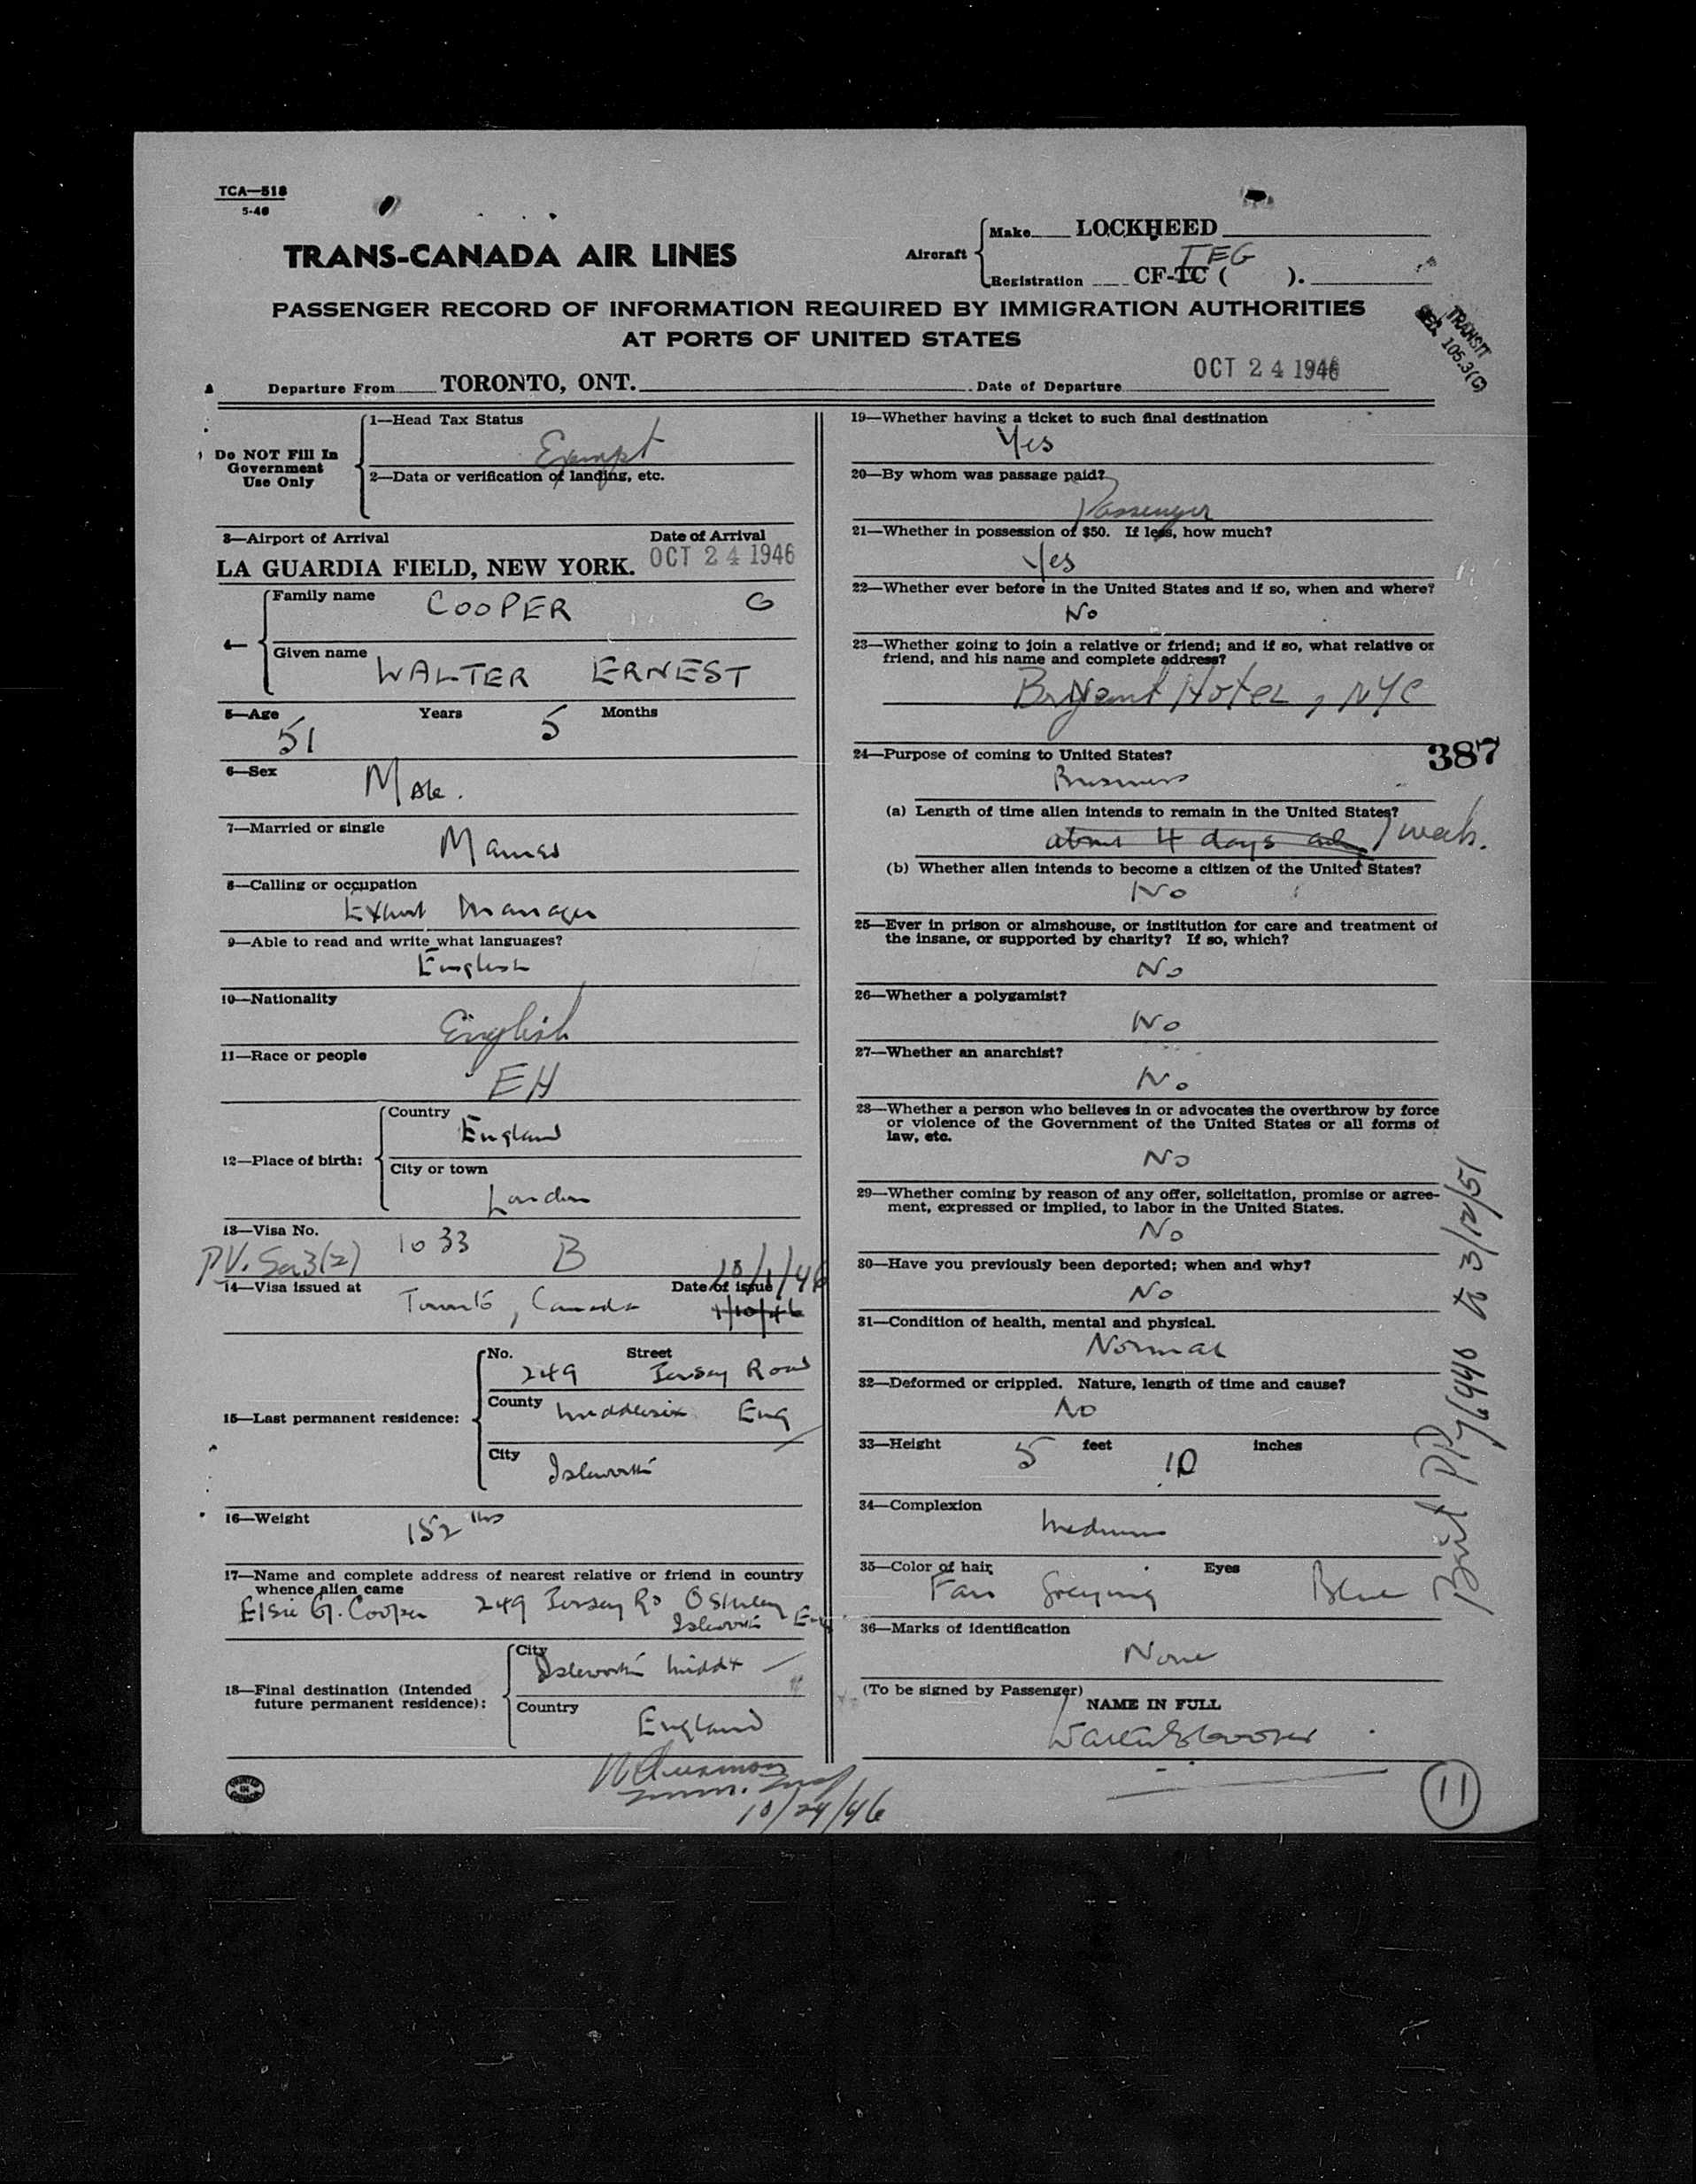 TCA—518
5-46
TRANS-CANADA AIR LINES
Aircraft
Make LOCKHEED
Registration CF-TC ( ). TEG
PASSENGER RECORD OF INFORMATION REQUIRED BY IMMIGRATION AUTHORITIES
AT PORTS OF UNITED STATES
TRANSIT
105.3(C)
Departure From TORONTO, ONT. Date of Departure OCT 24 1946
Do NOT Fill In
Government
Use Only
1—Head Tax Status
Exempt
2—Data or verification of landing, etc.
3—Airport of Arrival Date of Arrival
LA GUARDIA FIELD, NEW YORK. OCT 24 1946
4—
Family name COOPER G
Given name WALTER ERNEST
5—Age 51 Years 5 Months
6—Sex Male.
7—Married or single Married
8—Calling or occupation
Export Manager
9—Able to read and write what languages?
English
10—Nationality
English
11—Race or people
EH
12—Place of birth:
Country
England
City or town
London
13—Visa No. 1033 B
PV. Sec 3(2)
14—Visa issued at Toronto, Canada Date of issue 10/1/46
1/10/46
15—Last permanent residence:
No. 249 Street Jersey Road
County Middlesex Eng
City Isleworth
16—Weight 152 lbs
17—Name and complete address of nearest relative or friend in country
whence alien came
Elsie G. Cooper 249 Jersey Rd Osterley
Isleworth Eng
18—Final destination (Intended
future permanent residence):
City
Isleworth Middx
Country
England
Imm. Insp
10/24/46
19—Whether having a ticket to such final destination
Yes
20—By whom was passage paid?
Passenger
21—Whether in possession of $50. If less, how much?
Yes
22—Whether ever before in the United States and if so, when and where?
No
23—Whether going to join a relative or friend; and if so, what relative or
friend, and his name and complete address?
Bryant Hotel, NYC
24—Purpose of coming to United States?
387
Business
(a) Length of time alien intends to remain in the United States?
about 4 days 1 week.
(b) Whether alien intends to become a citizen of the United States?
No
25—Ever in prison or almshouse, or institution for care and treatment of
the insane, or supported by charity? If so, which?
No
26—Whether a polygamist?
No
27—Whether an anarchist?
No
28—Whether a person who believes in or advocates the overthrow by force
or violence of the Government of the United States or all forms of
law, etc.
No
29—Whether coming by reason of any offer, solicitation, promise or agree-
ment, expressed or implied, to labor in the United States.
No
30—Have you previously been deported; when and why?
No
31—Condition of health, mental and physical.
Normal
32—Deformed or crippled. Nature, length of time and cause?
No
33—Height 5 feet 10 inches
34—Complexion
Medium
35—Color of hair Fair Greying Eyes Blue
36—Marks of identification
None
(To be signed by Passenger)
NAME IN FULL
Walter E Cooper
Brit PP 76440 to 3/12/51
PRINTED IN CANADA
11